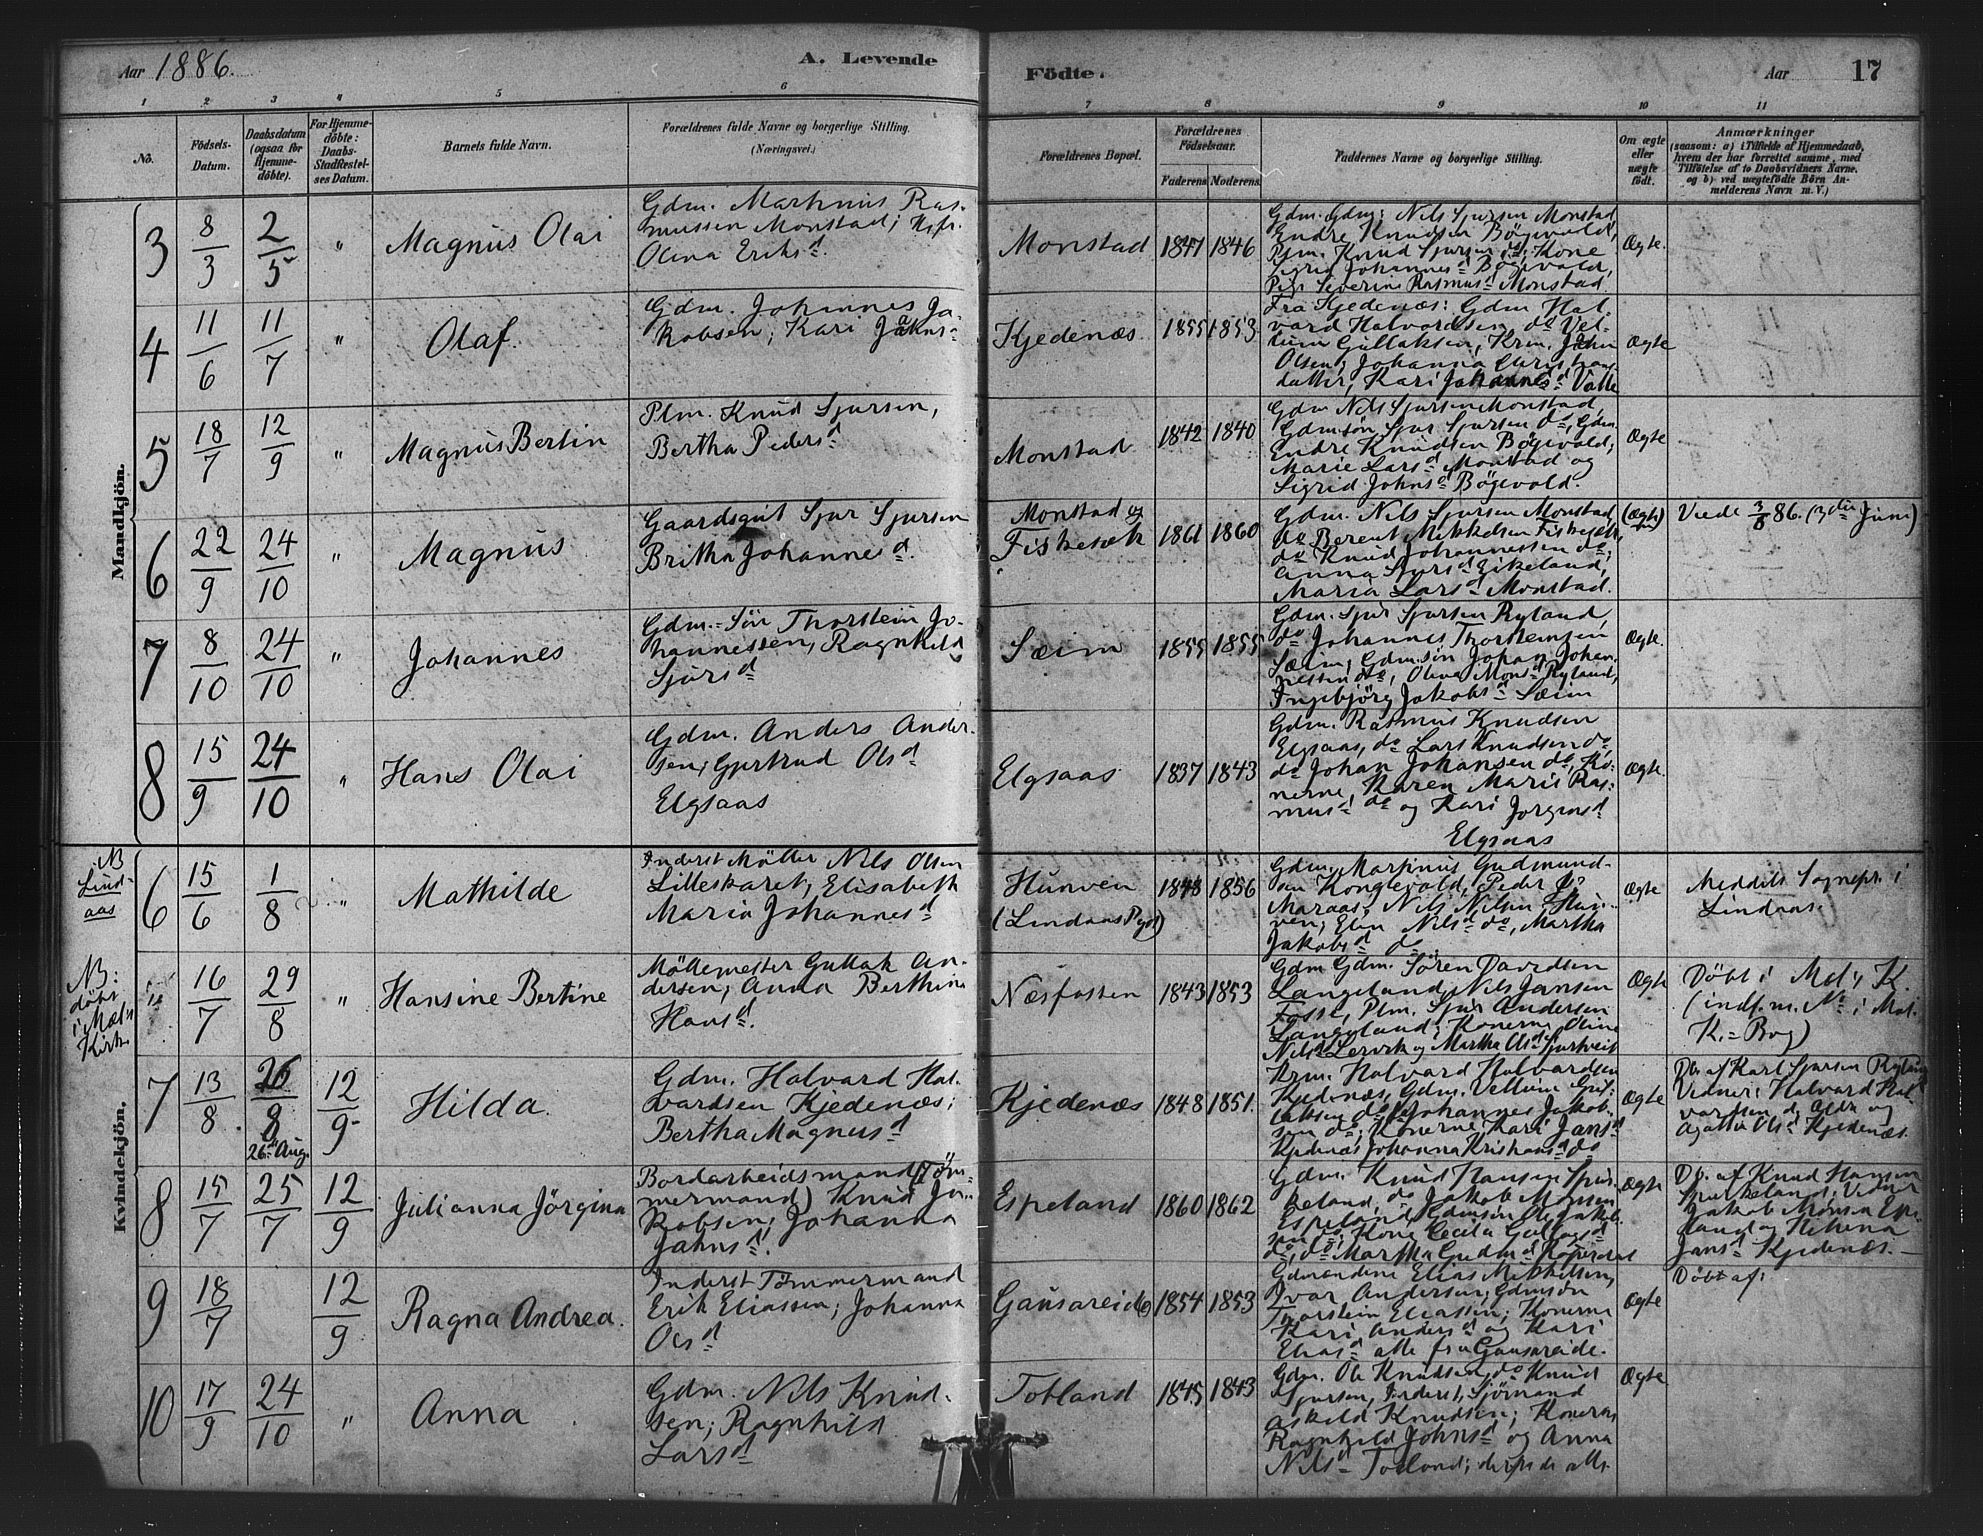 Aar 1886.
A. Levende
Födte.
Aar
17
1 2 3 4 5 6 7 8 9 10 11
No.
Födsels-
Datum.
Daabsdatum
(ogsaa for
Hjemme-
döbte).
For Hjemme-
döbte:
Daabs-
Stadfæstel-
ses Datum.
Barnets fulde Navn.
Forældrenes fulde Navne og borgerlige Stilling.
(Næringsvei.)
Forældrenes Bopæl.
Forældrenes
Födselsaar.
Faderens Moderens
Faddernes Navne og borgerlige Stilling.
Om ægte
eller
uægte
födt.
Anmærkninger
(saasom: a) i Tilfælde af Hjemmedaab,
hvem der har forrettet samme, med
Tilföielse af to Daabsvidners Navne.
og b) ved uægtefödte Börn An-
melderens Navn m. V.)
Mandkjön.
3 8/3 2/5 " Magnus Olai
Gdm. Martinus Ras-
mussen Monstad; Hsfr.
Olina Eriksd.
Monstad 1847 1846
Gdm. Gdm: Nils Sjursen Monstad
Endre Knudsen Bögevald,
Plm. Knud Sjursen do; Kone
Sigrid Johannesd Bögevald,
Pige Severine Rasmusd Monstad.
Ægte.
4 11/6 11/7 " Olaf.
Gdm. Johannes Ja-
kobsen; Kari Jahns-
Kjedenæs 1855 1853
Fra Kjedenæs: Gdm Hal-
vard Halvardsen, do Vel-
lum Gullaksen, Krm. John
Olsen; Johanna Christians
datter, Kari Johannesd Valle
Ægte
5 18/7 12/9 " Magnus Bertin
Plm. Knud Sjursen,
Bertha Pedersd
Monstad 1842 1840
Gdm Nils Sjursen Monstad,
Gdmsön Sjur Sjursen do, Gdm.
Endre Knudsen Bögevald,
Marie Larsd Monstad og
Sigrid Johnsd Bögevold.
Ægte
6 22/9 24/10 " Magnus
Gaardsgut Sjur Sjursen
Britha Johannesd.
Monstad og
Fiskesæt 1861 1860
Gdm. Nils Sjursen Monstad
do Berent Mikkelsen Fiskesæt,
do Knud Johannessen do;
Anna Sjursd Eikeland,
Maria Larsd Monstad.
(Ægte)
Viede 3/6 86. (3die Juni)
7 8/10 24/10 " Johannes
Gdm.=Sön Thorstein Jo-
hannessen, Ragnhild
Sjursd
Sæim 1855 1855
Gdm. Sjur Sjursen Ryland,
do Johannes Thorsteinsen
Sæim; Gdmsön Johan Johan-
nessen do, Oline Monsd Ryland,
Ingebjörg Jakobsd Sæim
Ægte.
8 15/9 24/10 " Hans Olai
Gdm. Anders Ander-
sen; Gjertrud Olsd
Elgsaas
Elgsaas 1837 1843
Gdm. Rasmus Knudsen
Elgsaas, do Lars Knudsen do,
do Johan Johansen do, Ko-
nerne, Karen Marie Ras-
musd do og Kari Jorgensd
Elgsaas
Ægte.
Kvindekjön.
NB
Lind-
aas
6 15/6 1/8 " Mathilde
Inderst Möller Nils Olsen
Lilleskaret, Elisabeth
Maria Johannesd
Hunven
(Lindaas Pgd) 1848 1856
Gdm. Martinus Gudmund-
sen Konglevold, Peder
Maraas, Nils Nilsen Hun-
ven; Elen Nilsd do, Martha
Jakobsd do
Ægte
Meddelt Sognepr. i
Lindaas.
NB:
döbt
i Mæl's
Kirke
" 16/7 29/8 " Hansine Bertine
Möllemester Gullak An-
dersen; Anna Berthine
Hansd.
Næsfossen 1843 1853
Gdm Gdm. Sören Davidsen
Langeland, Nils Jansen
Fosse, Plm. Sjur Andersen
Langeland; Konerne Oline
Nilsd Lervik og Martha Olsd
Ægte
Döbt i Mel's K.
(indf. m. No i Mel.
K.=Bog)
7 13/8 26/8 12/9 Hilda.
26de Aug.
Gdm. Halvard Hal-
vardsen Kjedenæs;
Bertha Magnusd
Kjedenæs 1848 1851.
Krm. Halvard Halvardsen
Kjedenæs, Gdm. Vellum Gul-
laksen do, Johannes Jakob-
sen do; Konerne Kari Jansd
Kjedenæs Johanna Kristiansd do
Ægte
Db. af Karl Sjursen Ryland
Vidner: Halvard Hal-
vardsen d. Eldre og
Agatha Olsd Kjedenæs.
8 15/7 25/7 12/9 Julianna Jörgina
Bordarbeidsmand (Töm-
mermand) Knud Ja-
kobsen; Johanna
Jahnsd.
Espeland 1860 1862
Gdm. Knud Hansen Spur-
keland, do Jakob Monsen
Espeland, Gdmsön Ole Jakob-
sen do; Kone Cecilia Gullagsd
do, do Martha Gudmd
Ægte
Db. af Knud Hansen
Spurkeland; Vidner
Jakob Monsen Espe-
land og Helena
Jansd Kjedenæs.
9 18/7 12/9 Ragna Andrea.
Inderst Tömmermand
Erik Eliassen; Johanna
Olsd
Gausareide 1854 1853
Gdmændene Elias Mikkelsen,
Ivar Andersen; Gdmsön
Thorstein Eliassen; Konerne
Kari Andersd og Kari
Eliasd alle fra Gausareide.
Ægte
Döbt af:
10 17/9 24/10 " Anna
Gdm. Nils Knud-
sen; Ragnhild
Larsd
Totland 1845 1843
Gdm. Ole Knudsen, do Knud
Sjursen, Inderst, Sjömand
Askild Knudsen; Konerne
Ragnhild Johnsd og Anna
Nilsd Totland;
Ægte